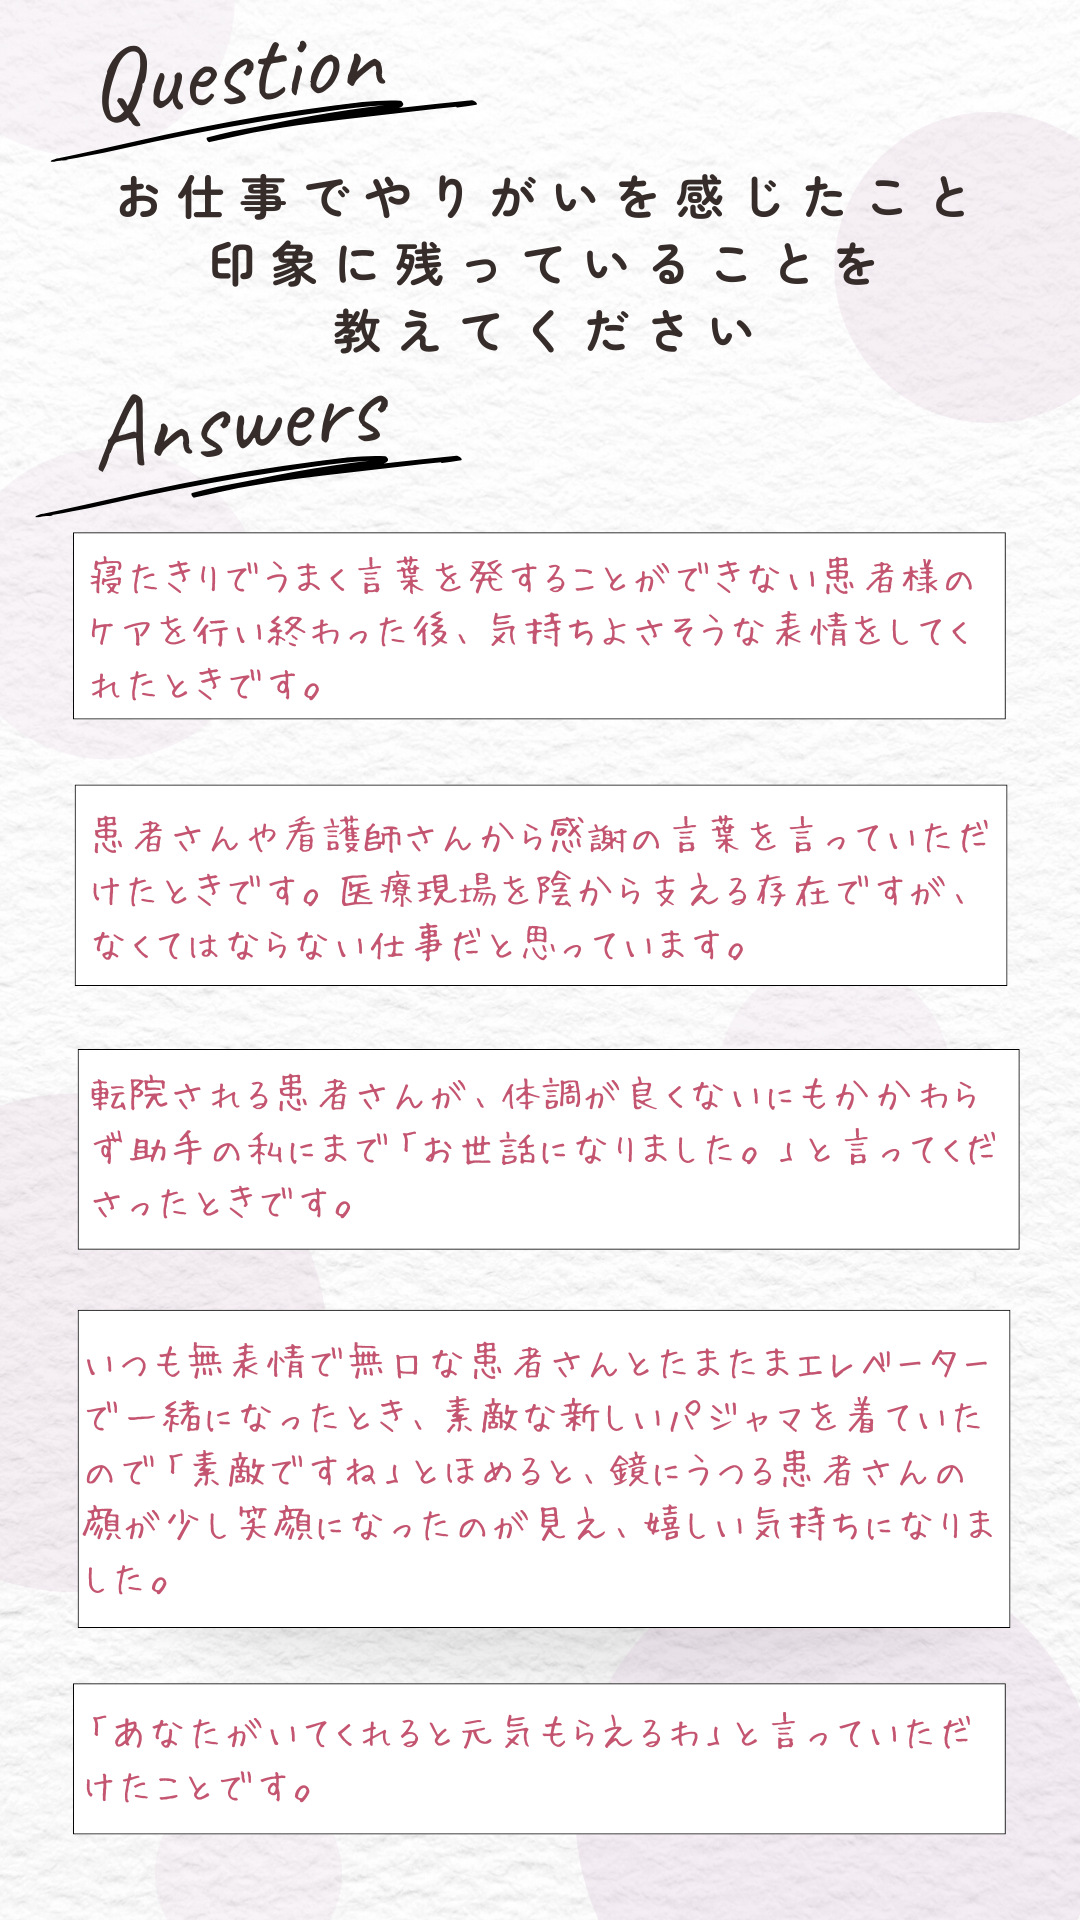 Question
お仕事でやりがいを感じたこと
印象に残っていることを
教えてください
Answers
寝たきりでうまく言葉を発することができない患者様の
ケアを行い終わった後、気持ちよさそうな表情をしてく
れたときです。
患者さんや看護師さんから感謝の言葉を言っていただ
けたときです。医療現場を陰から支える存在ですが、
なくてはならない仕事だと思っています。
転院される患者さんが、体調が良くないにもかかわら
ず助手の私にまで「お世話になりました。」と言ってくだ
さったときです。
いつも無表情で無口な患者さんとたまたまエレベーター
で一緒になったとき、素敵な新しいパジャマを着ていた
ので「素敵ですね」とほめると、鏡にうつる患者さんの
顔が少し笑顔になったのが見え、嬉しい気持ちになりま
した。
「あなたがいてくれると元気もらえるわ」と言っていただ
けたことです。